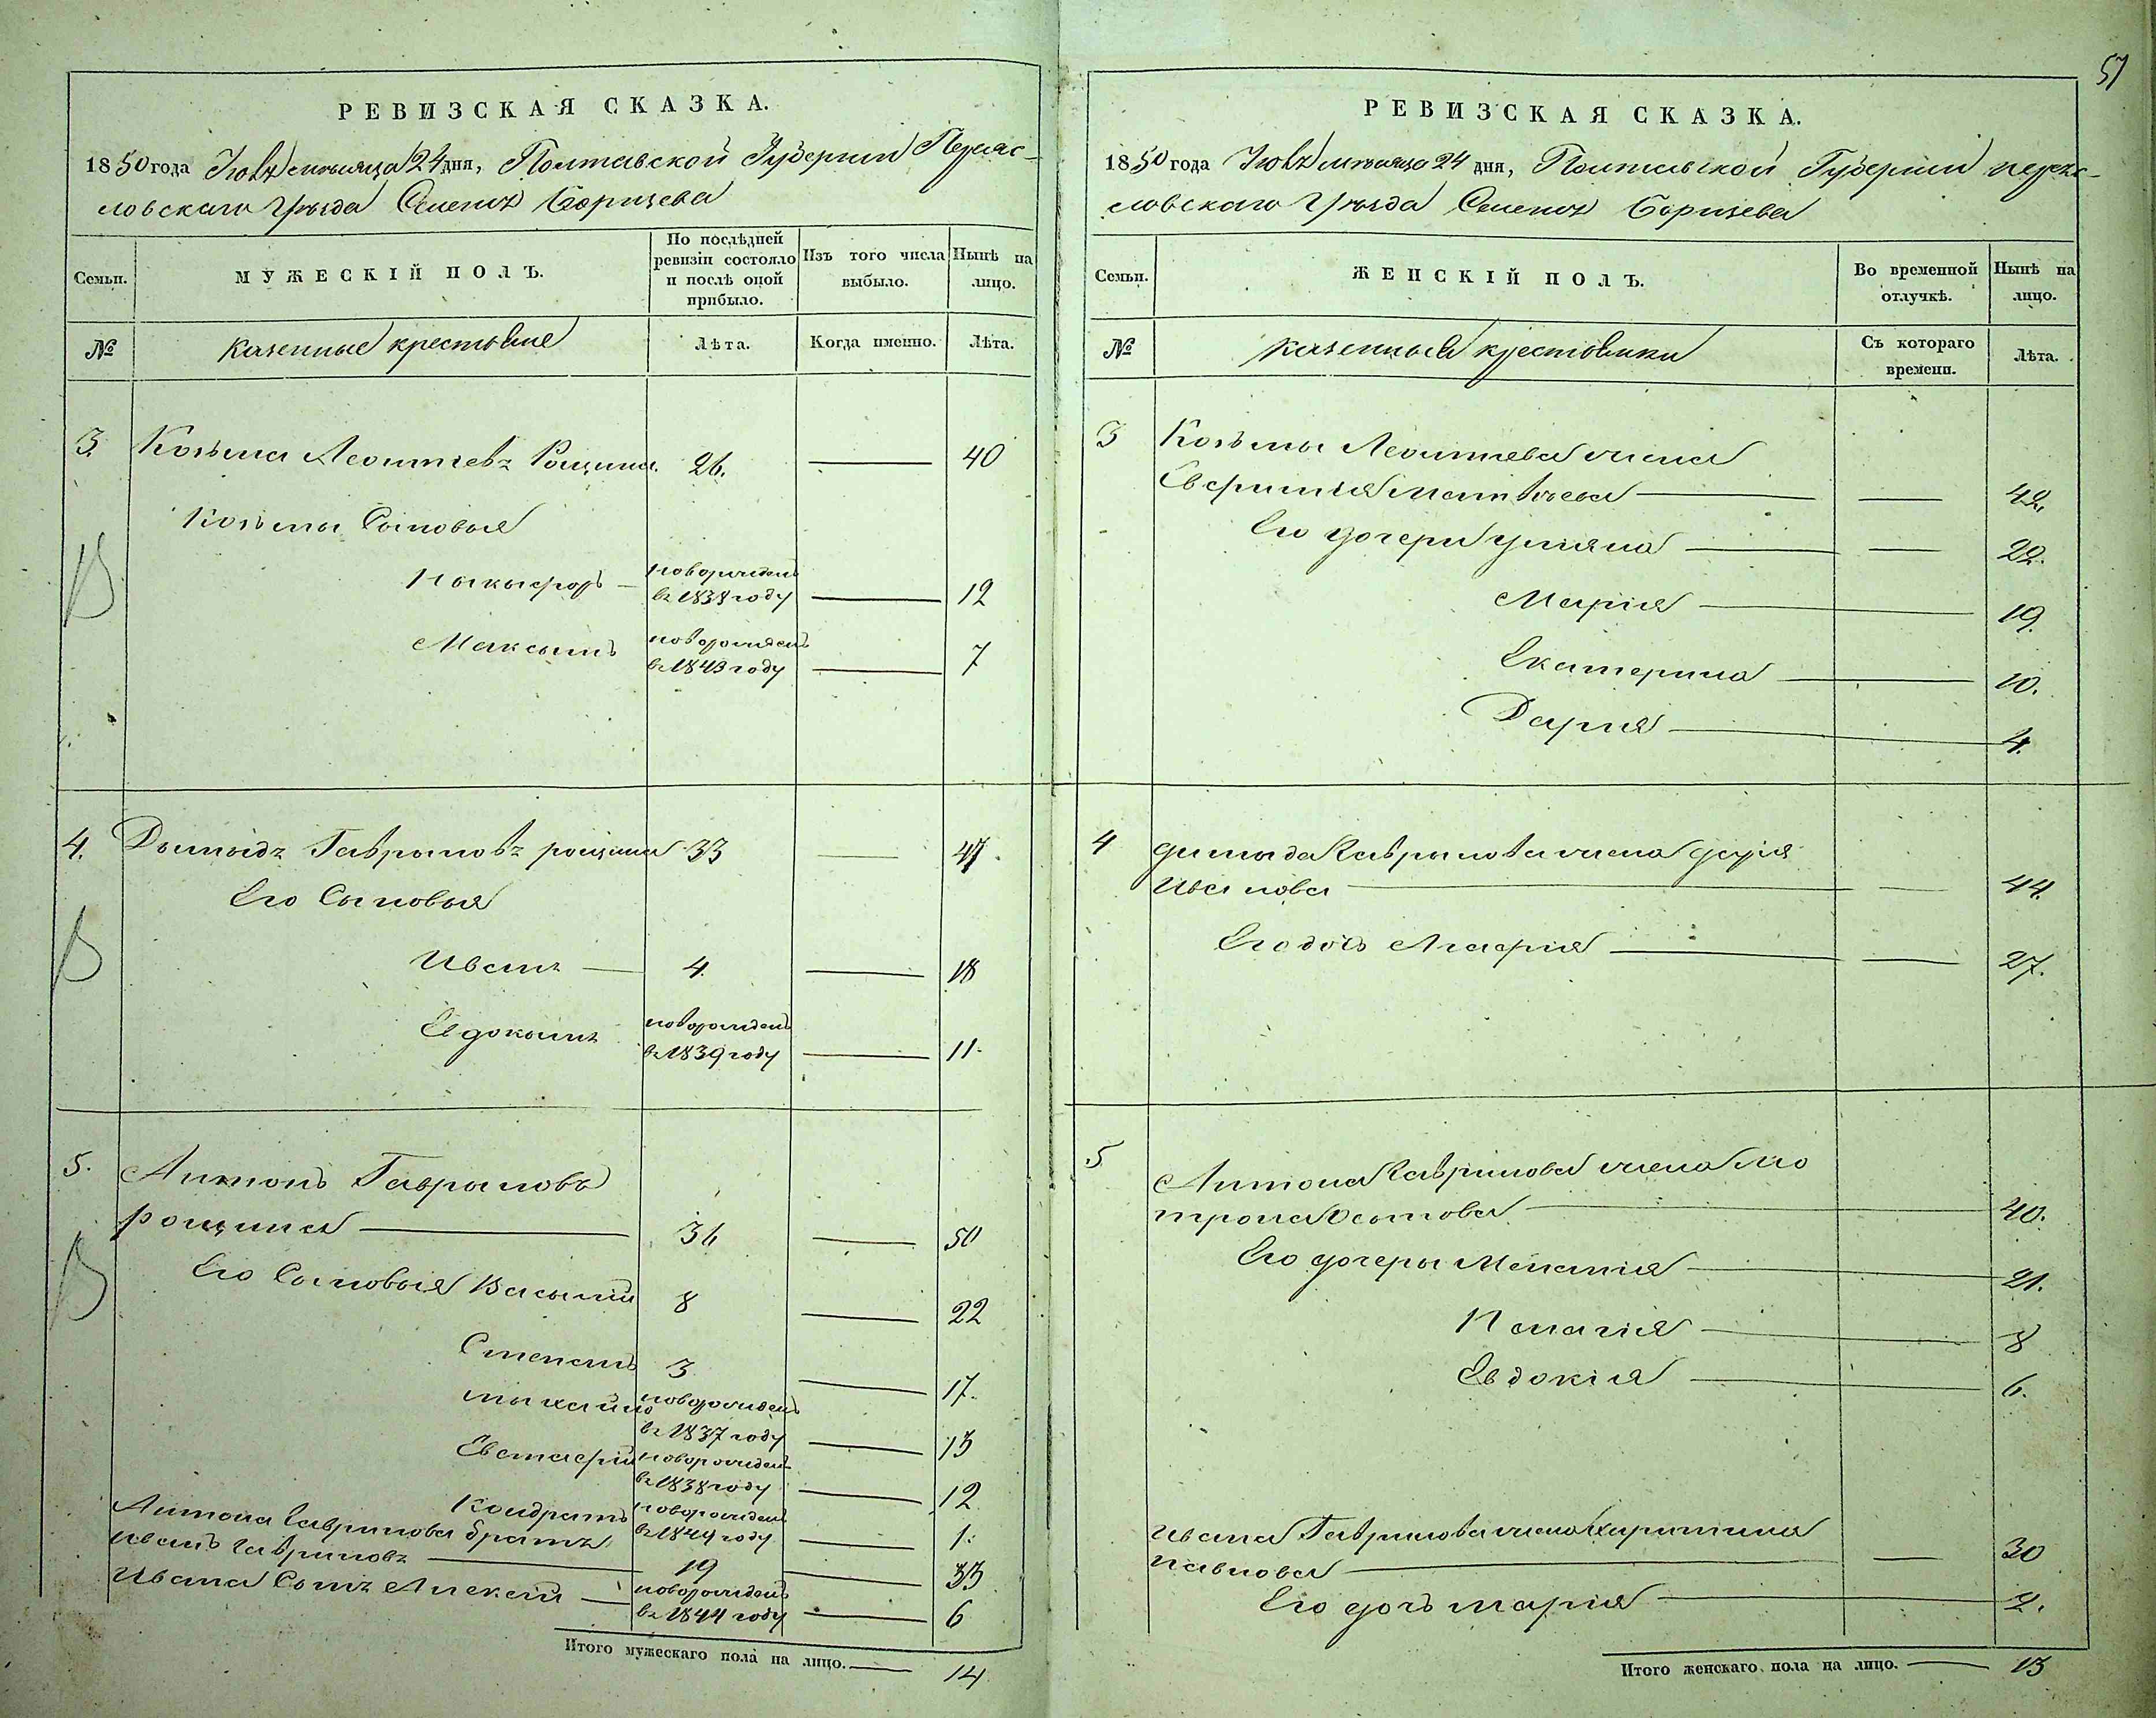 РЕВИЗСКАЯ СКАЗКА.
1850 года Июля месяца 24 дня, Полтавской Губернии Переяс-
ловскаго Уезда Селения Борщева
Семьи.
МУЖЕСКІЙ ПОЛЪ.
По послѣдней
ревизіи состояло
и послѣ оной
прибыло.
Изъ того числа
выбыло.
Нынѣ на
лицо.
№
Казенные крестьяне
Лѣта.
Когда именно.
Лѣта.
3. Козьма Леонтіевъ Рощина 26. 40
Козьмы Сыновья
Ныкыфоръ новорожденъ
въ 1838 году 12
Максымъ новорожденъ
въ 1843 году 7
4. Дымыдъ Гаврыловъ рощина 33 47.
Его Сыновья
Иванъ 4. 18
Евдокымъ новорожденъ
въ 1839 году 11.
5. Антонъ Гаврыловъ
рощина 36 50
Его Сыновья Василій 8 22
Степанъ 3 17.
Мыхайло новорожденъ
въ 1837 году 13
Евстафій новорожденъ
въ 1838 году 12
Кондратъ новорожденъ
въ 1849 году 1.
Антона Гаврилова братъ
Иванъ Гавриловъ 19 33
Ивана Сынъ Алексій новорожденъ
въ 1844 году 6
Итого мужескаго пола на лицо. 14
57
РЕВИЗСКАЯ СКАЗКА.
1850 года Июля месяца 24 дня, Полтавской Губерніи Переяс-
ловскаго Уезда Селения Борщева
Семьи.
ЖЕНСКІЙ ПОЛЪ.
Во временной
отлучкѣ.
Нынѣ на
лицо.
№
Казенныя крестьянки
Съ котораго
времени.
Лѣта.
3 Козьмы Леонтіева жена
Евфимія Матвѣева 42.
Его дочери Уліяна 22.
Марія 19.
Екатерина 10.
Дарія 4.
4 Димыда Гаврылова жена Дарія
Иванова 44.
Его дочь Агафія 27.
5 Антона Гаврилова жена Мо
трона 40.
Его дочеры Меланія 21.
Пелагія 8
Евдокія 6.
Ивана Гаврилова жена Харитина
Павлова 30
Его дочь Марія 2.
Итого женскаго пола на лицо. 13